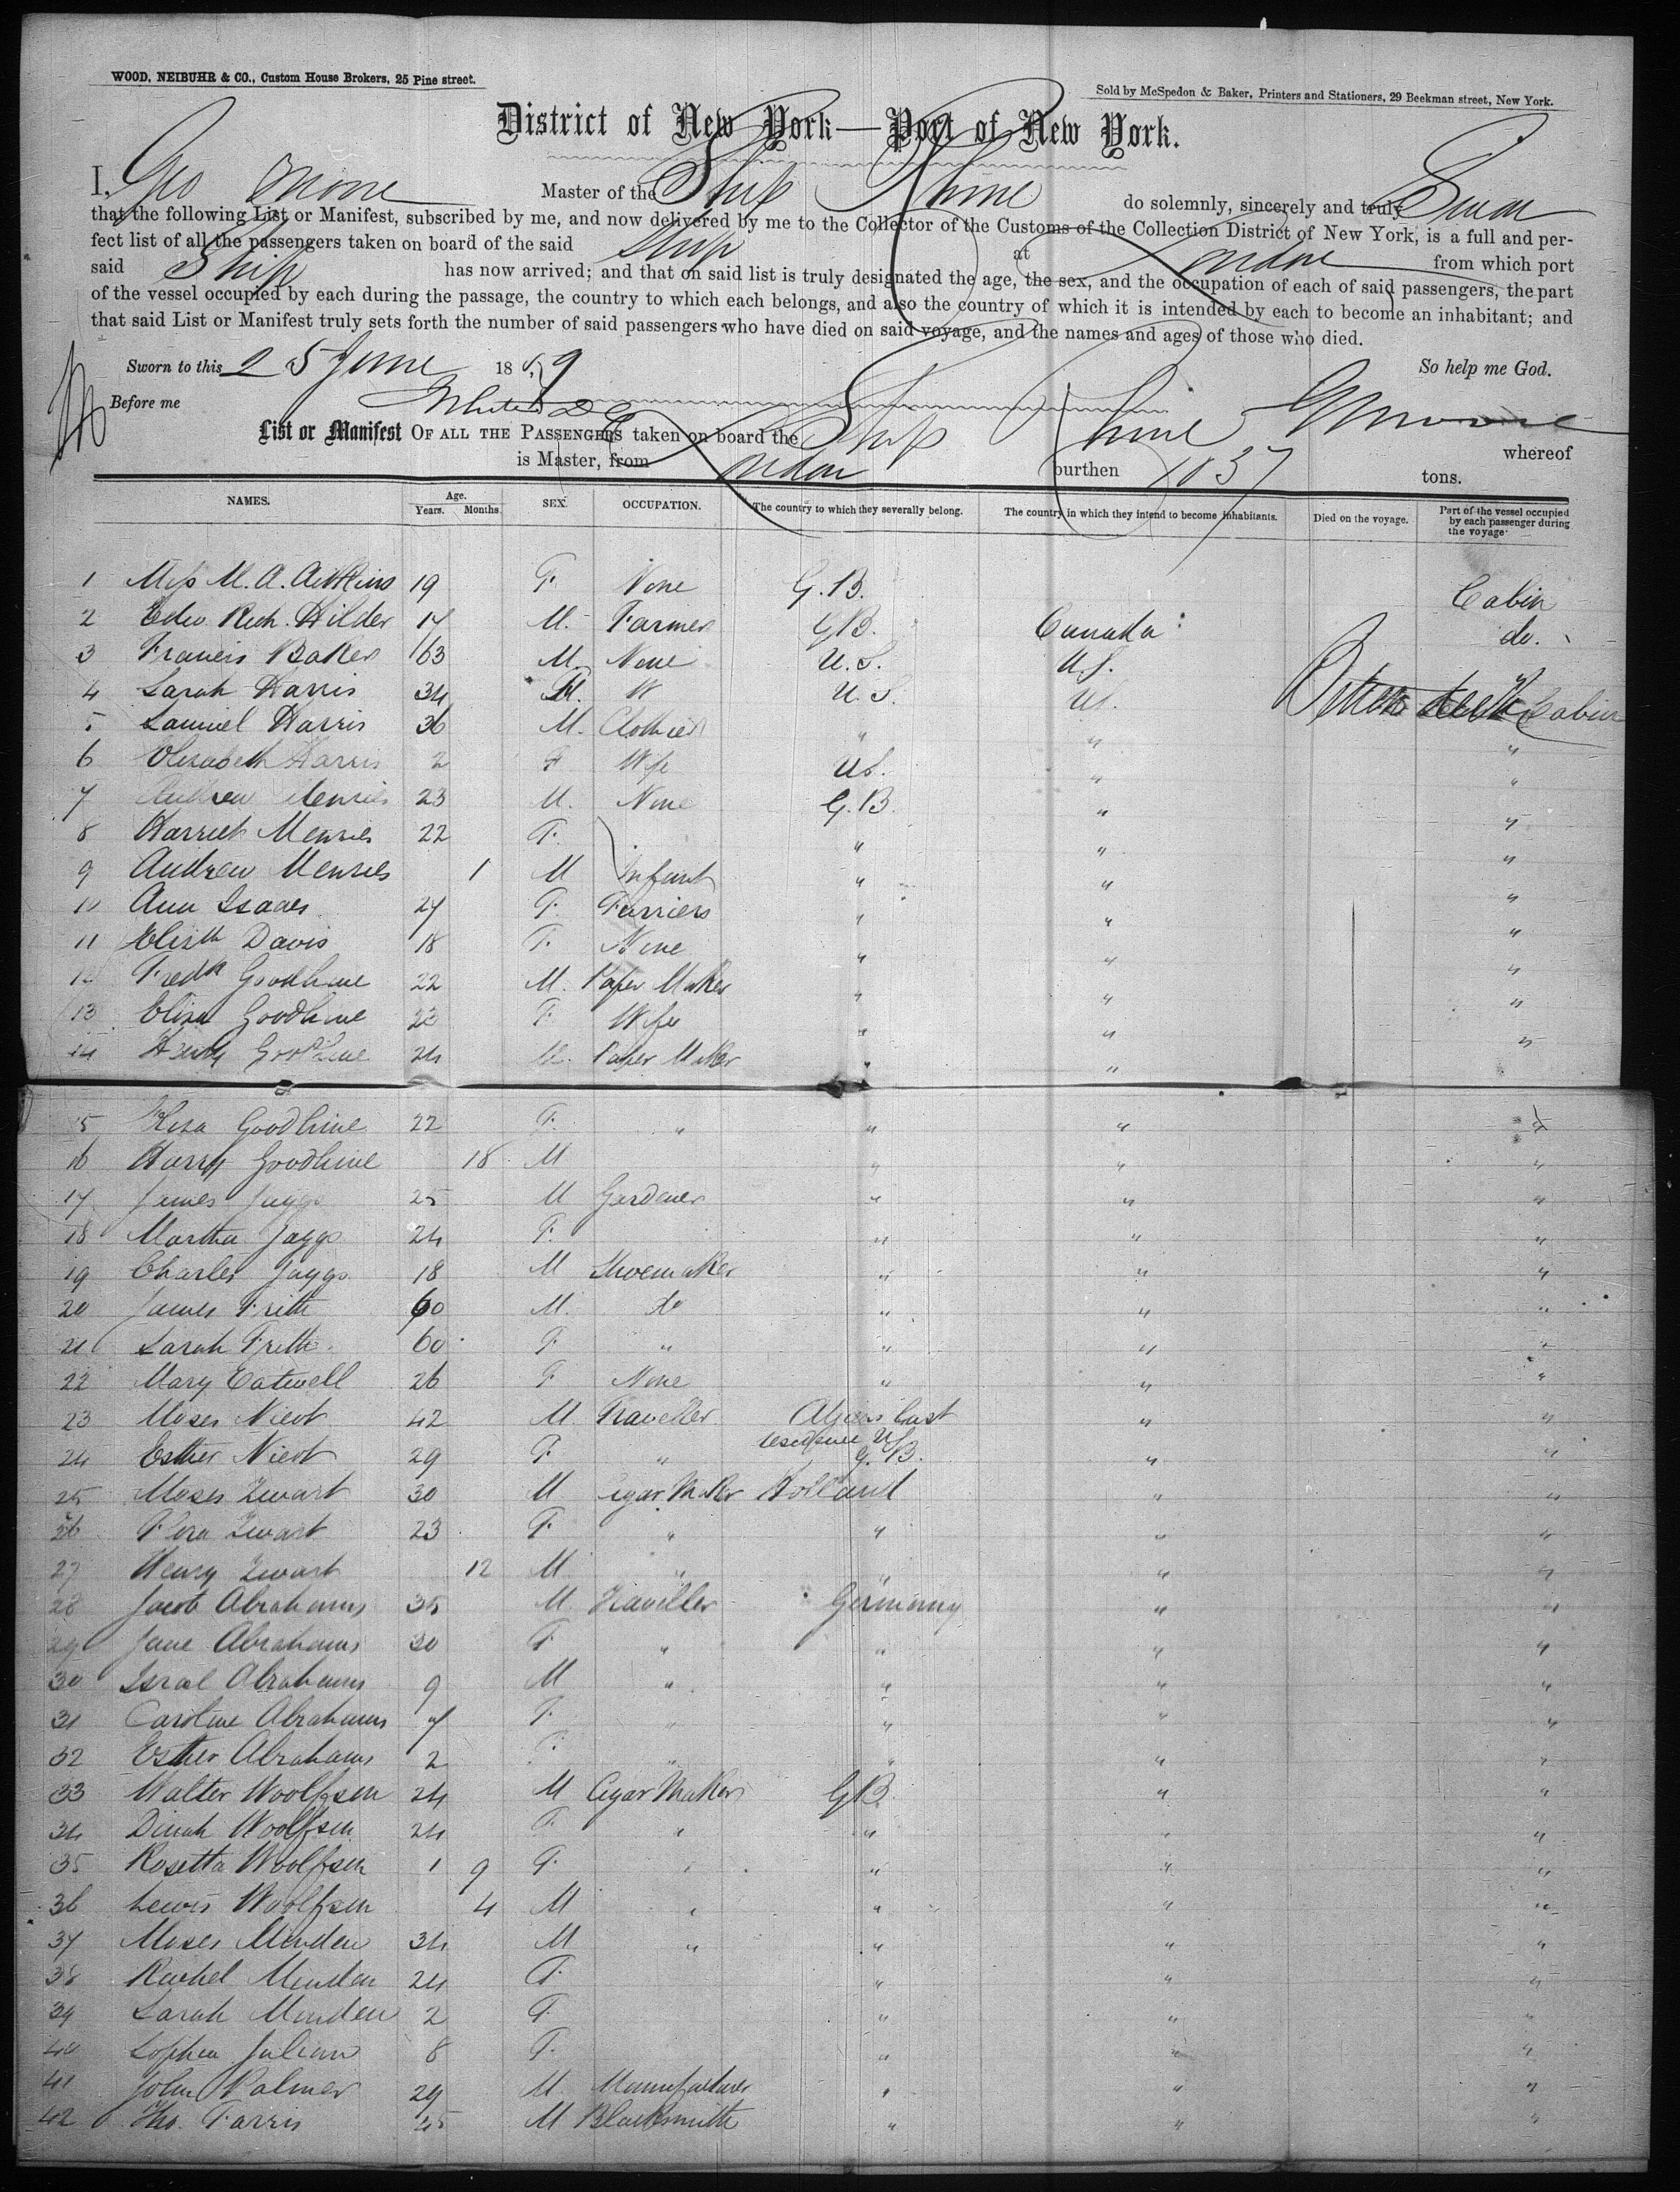 WOOD, NEIBUHR & CO., Custom House Brokers, 25 Pine street.
Sold by McSpedon & Baker, Printers and Stationers, 29 Beekman street, New York.
District of New York—Port of New York.
I, Geo Moore Master of the Ship Rhine do solemnly, sincerely and truly Swear
that the following List or Manifest, subscribed by me, and now delivered by me to the Collector of the Customs of the Collection District of New York, is a full and per-
fect list of all the passengers taken on board of the said Ship at London from which port
said Ship has now arrived; and that on said list is truly designated the age, the sex, and the occupation of each of said passengers, the part
of the vessel occupied by each during the passage, the country to which each belongs, and also the country of which it is intended by each to become an inhabitant; and
that said List or Manifest truly sets forth the number of said passengers who have died on said voyage, and the names and ages of those who died.
Sworn to this 25 June 1869 So help me God.
Before me
List or Manifest OF ALL THE PASSENGERS taken on board the Ship Rhine G Moore whereof
is Master, from London burthen 1037 tons.
NAMES. Age. Years. Months. SEX. OCCUPATION. The country to which they severally belong. The country in which they intend to become inhabitants. Died on the voyage. Part of the vessel occupied by each passenger during the voyage
1 Miss M. A. Adkins 19 F. None G. B. Cabin
2 Edw. Rich. Hilder 17 M. Farmer GB. Canada do.
3 Francis Baker 63 M. None U. S. U.S.
4 Sarah Harris 34 F. W U. S. US. Cabin
5 Samuel Harris 36 M. Clothier " " "
6 Elizabeth Harris 2 F Wife US. " "
7 Andrew Menzies 23 M. None G. B. " "
8 Harriet Menzies 22 F. " " "
9 Andrew Menzies 1 M Infant " " "
10 Ann Isaacs 27 F. Furriers " " "
11 Elizth Davis 18 F. None " " "
12 Fredk Goodhine 22 M. Paper Maker " " "
13 Eliza Goodhine 23 F. Wife " " "
14 Henry Goodhine 24 M. Paper Maker " "
15 Goodhine 22 F. " " " "
16 Harry Goodhine 18 M " " "
17 James Jaggs 25 M Gardener " " "
18 Martha Jaggs 24 F. " " "
19 Charles Jaggs 18 M Shoemaker " " "
20 James Frith 60 M. do " " "
21 Sarah Frith 60 F " " " "
22 Mary Eatwell 26 F None " " "
23 Moses Nieot 42 M. Traveller Last " "
residence US
24 Esther Nieot 29 F. " G. B. " "
25 Moses Zwart 30 M Cigar Maker Holland " "
26 Flora Zwart 23 F. " " " "
27 Henry Zwart 12 M " " " "
28 Jacob Abrahams 35 M. Traveller Germany " "
29 Jane Abrahams 30 F. " " " "
30 Isral Abrahams 9 M " " " "
31 Caroline Abrahams 7 F. " " " "
32 Esther Abrahams 2 F. " " " "
33 Walter Woolfsen 24 M Cigar Maker GB " "
34 Dinah Woolfsen 24 F. " " " "
35 Rosetta Woolfsen 1 9 F. " " " "
36 Lewis Woolfsen 4 M " " " "
37 Moses Minden 34 M " " " "
38 Rachel Minden 24 F. " " "
39 Sarah Minden 2 F. " " "
40 Sophia Julian 8 F. " " "
41 John Palmer 29 M. Manufacturer " " "
42 Tho. Farris 25 M Blacksmith " " "